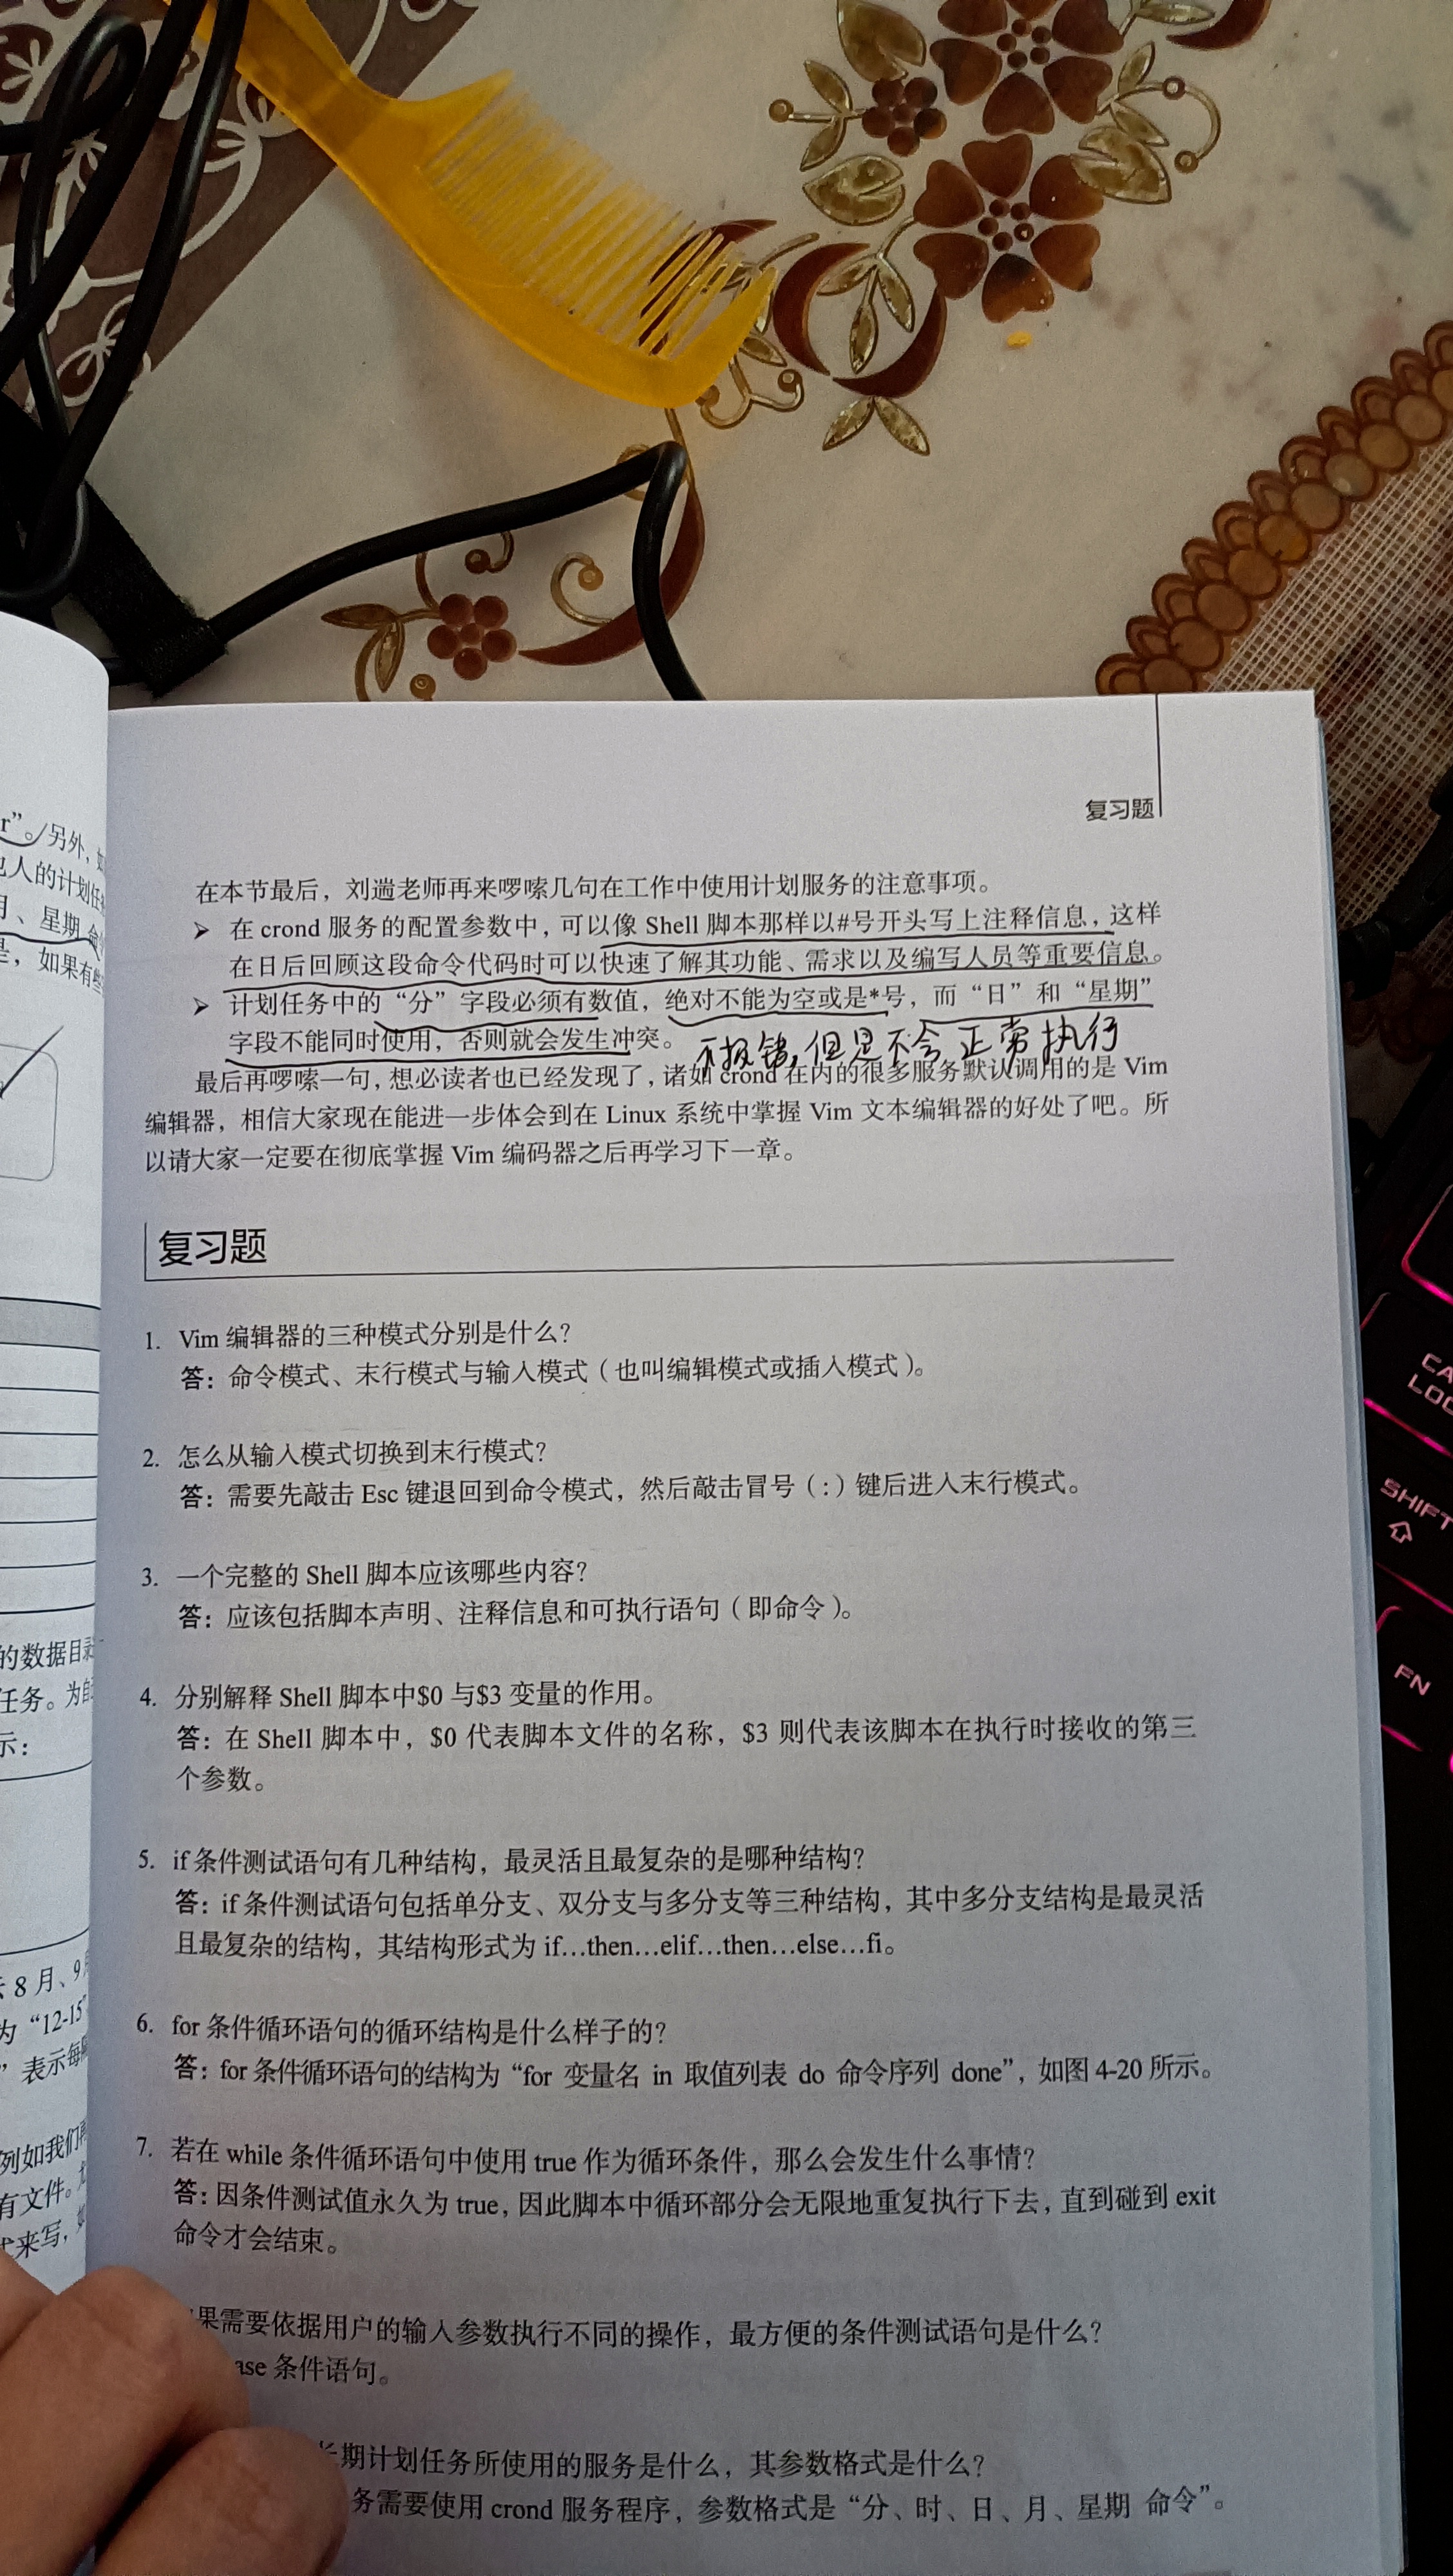 复习题
在本节最后，刘遄老师再来啰嗦几句在工作中使用计划服务的注意事项。
➢ 在 crond 服务的配置参数中，可以像 Shell 脚本那样以#号开头写上注释信息，这样
在日后回顾这段命令代码时可以快速了解其功能、需求以及编写人员等重要信息。
➢ 计划任务中的“分”字段必须有数值，绝对不能为空或是*号，而“日”和“星期”
字段不能同时使用，否则就会发生冲突。
不报错，但是不会正常执行
最后再啰嗦一句，想必读者也已经发现了，诸如 crond 在内的很多服务默认调用的是 Vim
编辑器，相信大家现在能进一步体会到在 Linux 系统中掌握 Vim 文本编辑器的好处了吧。所
以请大家一定要在彻底掌握 Vim 编码器之后再学习下一章。
复习题
1. Vim 编辑器的三种模式分别是什么？
答：命令模式、末行模式与输入模式（也叫编辑模式或插入模式）。
2. 怎么从输入模式切换到末行模式？
答：需要先敲击 Esc 键退回到命令模式，然后敲击冒号（:）键后进入末行模式。
3. 一个完整的 Shell 脚本应该哪些内容？
答：应该包括脚本声明、注释信息和可执行语句（即命令）。
4. 分别解释 Shell 脚本中$0 与$3 变量的作用。
答：在 Shell 脚本中，$0 代表脚本文件的名称，$3 则代表该脚本在执行时接收的第三
个参数。
5. if 条件测试语句有几种结构，最灵活且最复杂的是哪种结构？
答：if 条件测试语句包括单分支、双分支与多分支等三种结构，其中多分支结构是最灵活
且最复杂的结构，其结构形式为 if…then…elif…then…else…fi。
6. for 条件循环语句的循环结构是什么样子的？
答：for 条件循环语句的结构为“for 变量名 in 取值列表 do 命令序列 done”，如图 4-20 所示。
7. 若在 while 条件循环语句中使用 true 作为循环条件，那么会发生什么事情？
答：因条件测试值永久为 true，因此脚本中循环部分会无限地重复执行下去，直到碰到 exit
命令才会结束。
果需要依据用户的输入参数执行不同的操作，最方便的条件测试语句是什么？
ase 条件语句。
期计划任务所使用的服务是什么，其参数格式是什么？
务需要使用 crond 服务程序，参数格式是“分、时、日、月、星期 命令”。
r”。另外，
人的计划任
、星期
是，如果有些
的数据目录
任务。为
示：
8 月、9
为“12-15”
”表示每
列如我们
有文件。
来写，
CA
LOC
SHIFT
FN